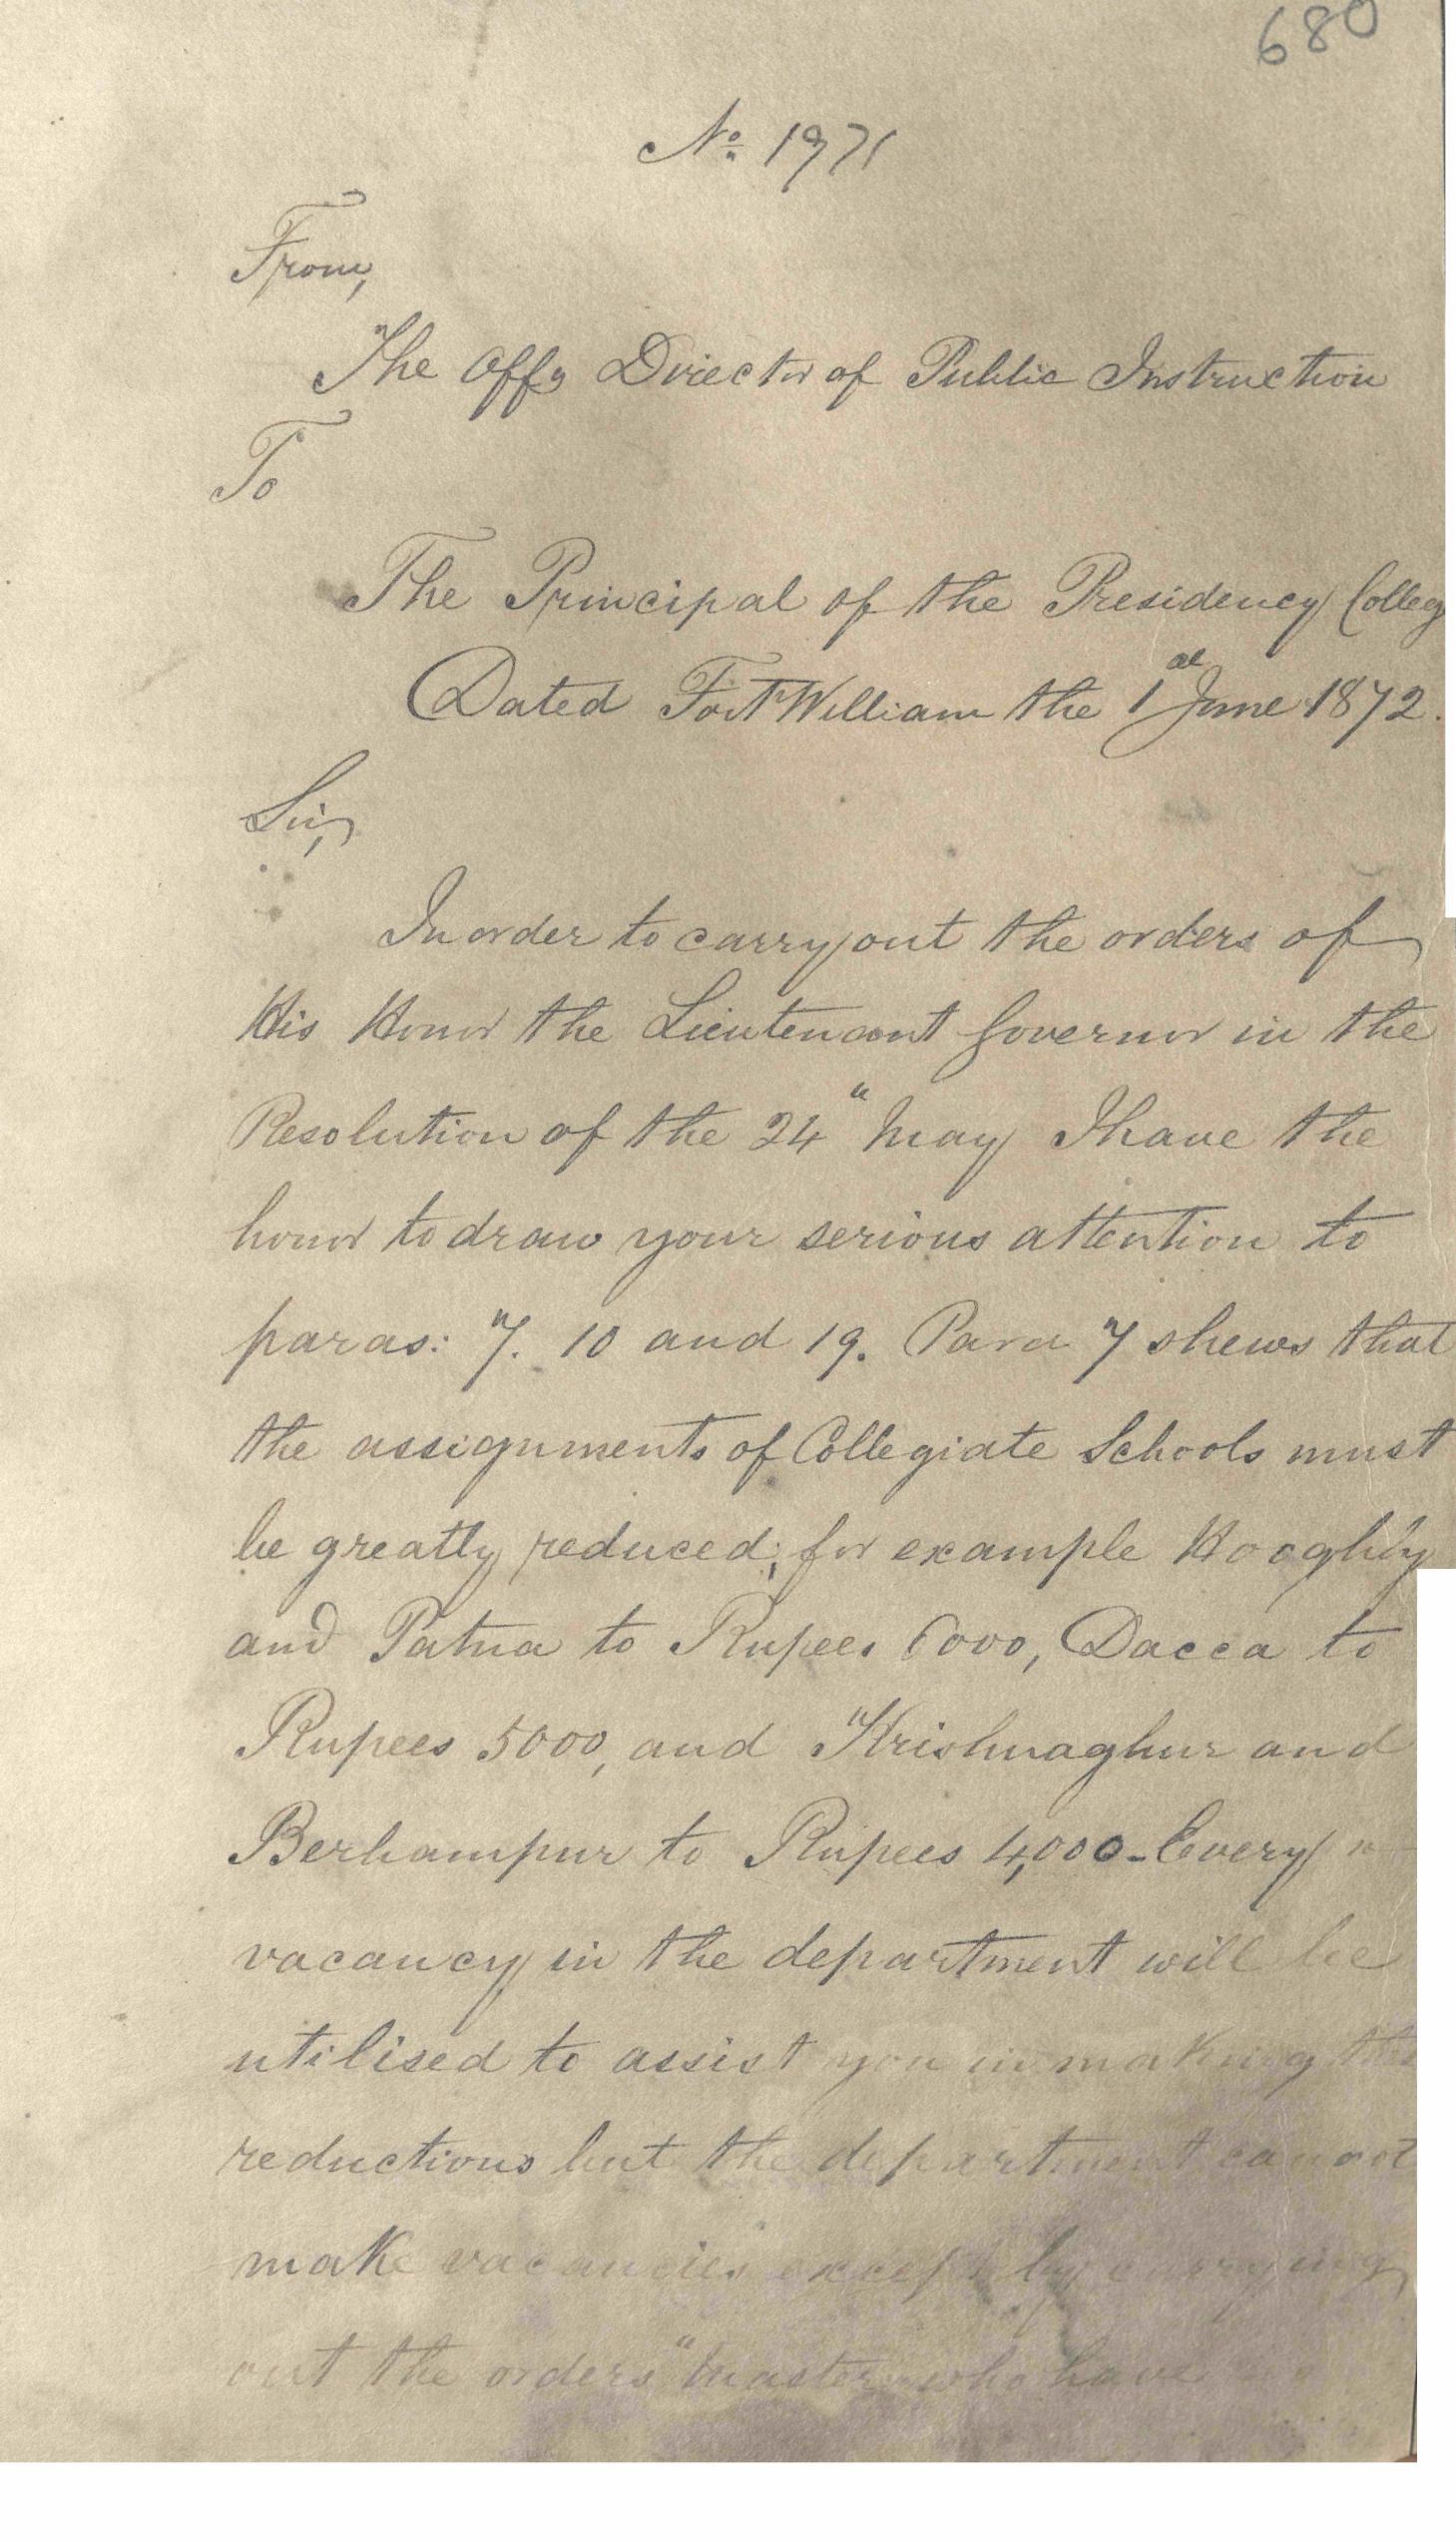 680
No. 1971
From,
The Offg Director of Public Instruction
To
The Principal of the Presidency Colleg
Dated Fort William the 1st June 1872.
Sir,
In order to carry out the orders of
His Honor the Lieutenant Governor in the
Resolution of the 24" May I have the
honor to draw your serious attention to
paras: 7. 10 and 19. Para 7 shews that
the assignments of Collegiate Schools must
be greatly reduced, for example Hooghly
and Patna to Rupees 6000, Dacca to
Rupees 5000, and Krishnaghur and
Berhampur to Rupees 4,000 - Every
vacancy in the department will be
utilised to assist you in making the
reductions but the department cannot
make vacancies except by carrying
out the orders "Masters who have